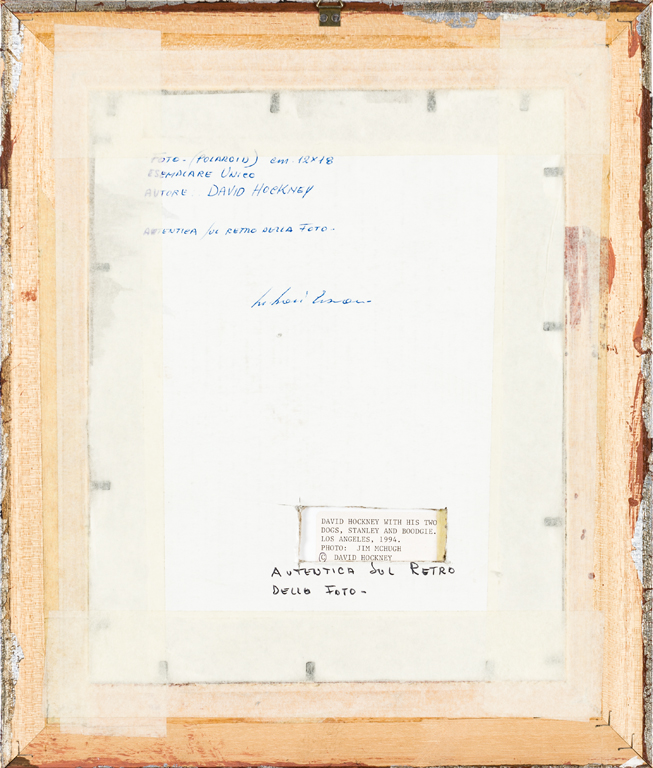 FOTO - (POLAROID) cm 12x18
ESEMPLARE UNICO
AUTORE DAVID HOCKNEY
AUTENTICA SUL RETRO DELLA FOTO -
DAVID HOCKNEY WITH HIS TWO
DOGS, STANLEY AND BOODGIE.
LOS ANGELES, 1994.
PHOTO: JIM MCHUGH
© DAVID HOCKNEY
AUTENTICA SUL RETRO
DELLA FOTO -